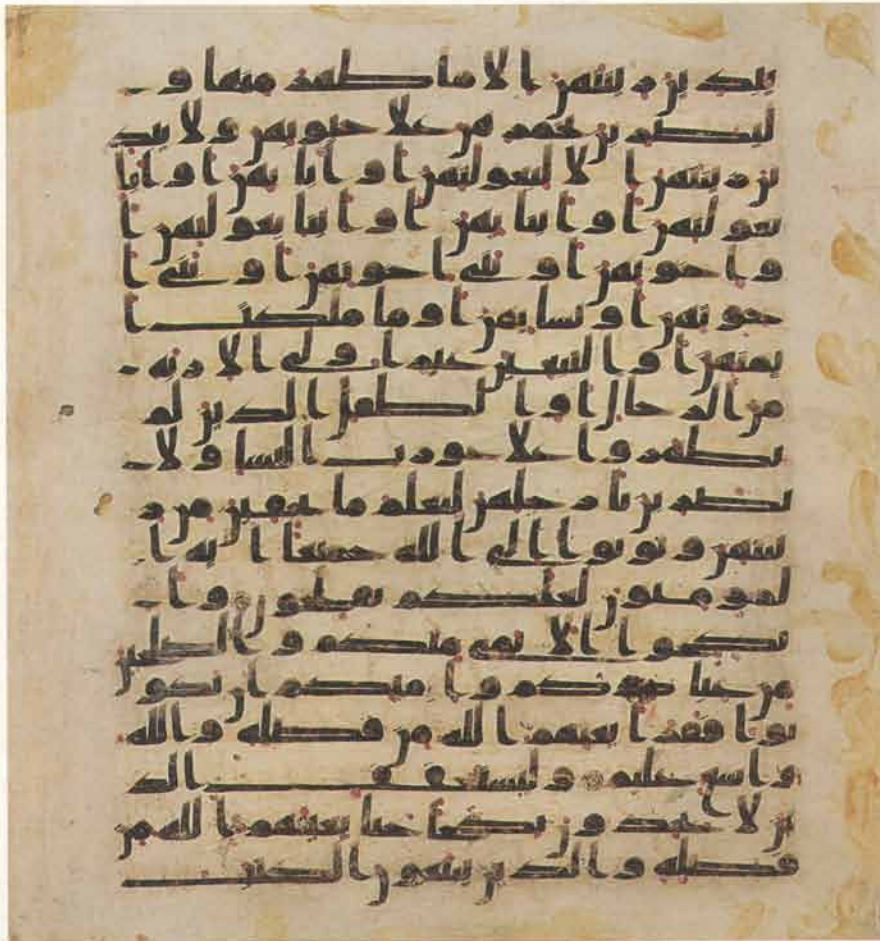 يبدين زينتهن الا ما ظهر منها و
ليضربن بخمرهن على جيوبهن ولا يبد
ين زينتهن الا لبعولتهن او ابايهن او ابا
بعولتهن او ابنايهن او ابنا بعولتهن ا
و اخونهن او بني اخونهن او بني ا
خوتهن او نسايهن او ما ملكت ا
يمنهن او التبعين غير اولي الاربه
من الرجال او الطفل الذين لم
يظهروا على عورت النسا ولا
يضربن بارجلهن ليعلم ما يخفين من ز
ينتهن وتوبوا الى الله جميعا ايه ا
لمومنون لعلكم تفلحون وا
نكحوا الايمى منكم والصلحين
من عبادكم وامايكم ان يكو
نوا فقرا يغنهم الله من فضله والله
واسع عليم وليستعفف الذ
ين لا يجدون نكاحا حتى يغنيهم الله من
فضله والذين يبتغون الكتب